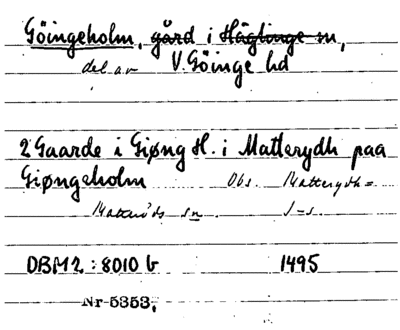 Göingeholm, gård i Häglinge sn,
del av V. Göinge hd
2 Gaarde i Giøng H. i Matterydh paa
Giøngeholm Obs. Matterydh =
Matteröds sn.
DBM2: 8010 b 1495
Nr 5353,